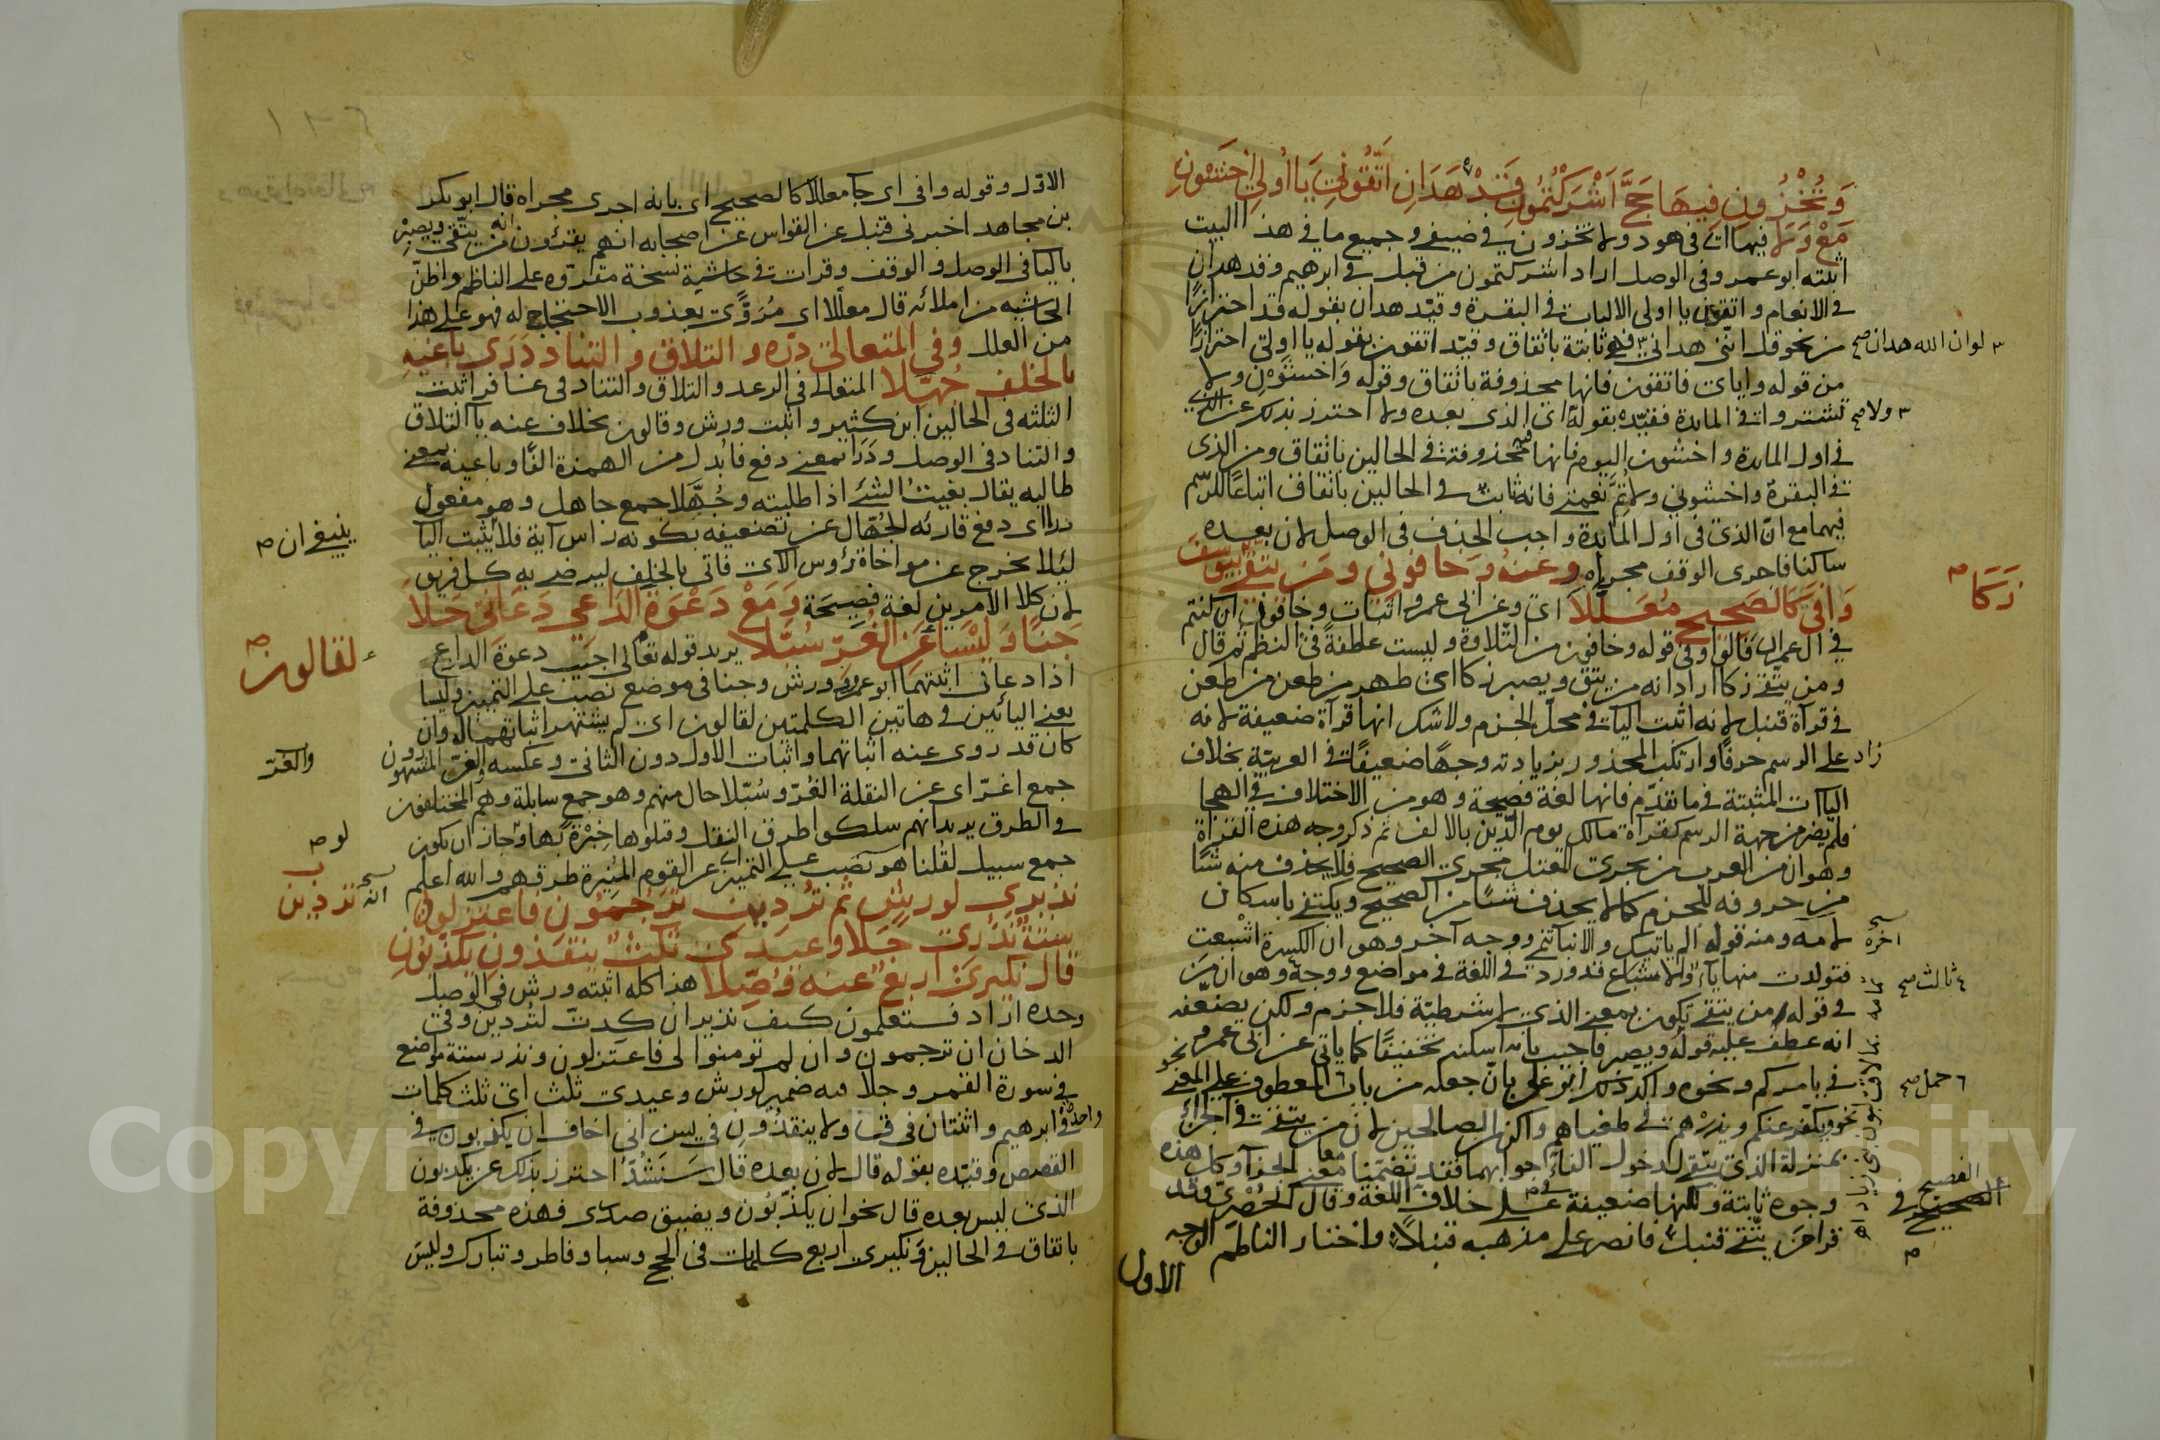 وَتُخْزُونِ فِيهَا حَجَّ اَشْرَكْتُمُونِ قَدْ هَدَانِ اتَّقُونِ يَا اُولِي اخْشَوْنِ
مَعْ وَلَا فيها اى في هود ولا تخزون في ضيفي وجميع ما في هذا البيت
اثبته ابو عمرو في الوصل اراد اشركتمون من قبل في ابرهيم وقد هدان
في الانعام واتقون يا اولى الالباب في البقرة وقيد هدان بقوله قد احترازًا
من نحو قل انني هداني فهو ثابتة باتفاق وقيد اتقون بقوله يا اولى احترازًا
٣ لو ان الله هدان صح
من قوله واياى فاتقون فانها محذوفة باتفاق وقوله وَاخشَوْنِ وَلا
تشتروا في المائدة فقيده بقوله اى الذى بعده ولا احترز بذلك عن الذي
٣ ولا صح
في اول المائدة واخشون اليوم فانها محذوفة في الحالين باتفاق ومن الذى
في البقرة واخشوني ولاتم نعمتي فانه ثابت في الحالين باتفاق اتباعًا للرسم
فيهما مع ان الذى في اول المائدة واجب الحذف في الوصل لان بعده
ساكنا فاجرى الوقف مجراه وعنهُ وخافوني ومن يتقي بيوسف
وَافى كَالصحيح مُعَلَّلَا اى وعن ابى عمرو اثبات وخافوني ان كنتم
زَكَا
في آل عمران قالوا وفي قوله وخافون من التلاوة وليست عاطفةً في النظم ثم قال
ومن يتقي زكا اراد انه من يتق ويصبر زكا اى طهر من طعن من طعن
في قرآة قنبل لانه اثبت الياء في محل الجزم ولاشك انها قرآة ضعيفة لانه
زاد على الرسم حرفًا وارتكب المحذور بزيادته وجهًا ضعيفًا في العربية بخلاف
الياآت المثبتة في ما تقدم فانها لغة فصيحة وهو من الاختلاف في الهجا
فلم يضر من جهة الرسم كقرآة مالك يوم الدين بالالف ثم ذكر وجه هذه القرآة
وهو ان من العرب من يجرى المعتل مجرى الصحيح فلا يحذف منه شئًا
من حروفه للجزم كما لا يحذف شئًا من الصحيح ويكتفي باسكان
لامه ومنه قوله الم ياتيك والانبا تنمي ووجه آخر وهو ان الكسرة اشبعت
فتولدت منها ياء والاشباع قد ورد في اللغة في مواضع ووجه وهو ان من
٤ ثالث صح
في قوله من يتقي تكون بمعنى الذى لا شرطية فلا جزم ولكن يضعفه
انه عطف عليه قوله ويصبر فاجيب بانه اسكنه تخفيفًا كما ياتي عن ابى عمرو
في يامركم ونحوه واكد ذلك ابو على بان جعله من باب المعطوف على المعنى نحو
٦ حمل صح
نحو ويكفر عنكم ويذرهم في طغيانهم واكن من الصالحين لان من يتقي في الجزاء
بمنزلة الذى يتقى لدخول الفاء في جوابهما فقد تضمنا معًا معنى الجزآ وكل هذه
وجوه ثابتة ولكنها ضعيفة على خلاف اللغة وقال الحُصْرى وقد
الفصيح في
قرا من يتقي قنبل فانصر على مذهبه قنبلا واختار الناظم الوجه
الاول
الاول وقوله وافى اى جآ معللا كالصحيح اى بانه اجرى مجراه قال ابو بكر
بن مجاهد اخبرني قنبل عن القواس عن اصحابه انهم يقرؤن انه من يتقي ويصبر
باليا في الوصل والوقف وقرات في حاشية نسخة مقروة على الناظم واظن
الحاشيه من املائه قال معللا اى مُرَوًّى بعذوب الاحتجاج له فهو على هذا
من العلل وفي المتعالي دره والتلاق والتناد دَرَى باغيهِ
بالخلف جُهَّلا المتعالى في الرعد والتلاق والتناد في غافر اثبت
الثلثه في الحالين ابن كثير واثبت ورش وقالون بخلاف عنه يا التلاق
والتناد في الوصل ودَرَا بمعنى دفع فابدل من الهمزة الفًا وباغيه بمعنى
طالبه يقال بغيتُ الشئ اذا طلبته وجُهَّلا جمع جاهل وهو مفعول
دراى دفع قارئه الجُهّال عن تضعيفه بكونه راس آية فلا يثبت اليا
ينبغي ان
لئلا يخرج عن مواخاة رؤس الآى فاتى بالخلف ليرضى به كل فريق
لان كلا الامرين لغة فصيحَة وَمَعْ دَعْوَةَ الدَاعي دَعَاني حَلَا
جَنًا وَلَيْسَا عَن الغُرِّ سُبَّلا يريد قوله تعالى اجيب دعوة الداع
لقالون
اذا دعاني اثبتهما ابو عمرو وورش وجنا في موضع نصب على التميز وليسا
يعني اليائين في هاتين الكلمتين لقالون اى لم يشتهر اثباتهما له وان
كان قد روى عنه اثباتهما واثبات الاول دون الثاني وعكسه والغر المشهورون
والغر
جمع اغر اى عن النقلة الغُرّ وسُبّلا حال منهم وهو جمع سابلة وهم المختلفون
في الطرق يريد انهم سلكوا طرق النقل وقبلوها خِبْرَةً بها وجاز ان يكون
لو
جمع سبيل لقلنا هو نصب على التميز اى عن القوم المُنيرة طرقهم والله اعلم
نذيري لورش ثم تُردين تَرْجُمُون فاعتزلون
تردين
ستةٌ نُذُرِى جَلا وعيدى ثلثٌ ينقذون يكذبون
قال نكيري اربعٌ عنه وُصِّلا هذا كله اثبته ورش في الوصل
وحده اراد فستعلمون كيف نذير ان كدتّ لتردين وفي
الدخان ان ترجمون وان لم تومنوا لى فاعتزلون ونذر ستة مواضع
في سورة القمر وجلا فيه ضمير لورش وعيدى ثلث اى ثلث كلمات
واحد في ابرهيم واثنتان في ق ولا ينقذون في يس انى اخاف ان يكذبون في
القصص وقيده بقوله قال لان بعده قال سَنَشُدُّ احترز بذلك عن يكذبون
الذى ليس بعده قال نحو ان يكذبُون ويضيق صدرى فهذه محذوفة
باتفاق في الحالين ونكيرى اربع كلمات في الحج وسبا وفاطر وتبارك وليس
Copyright © King Saud University